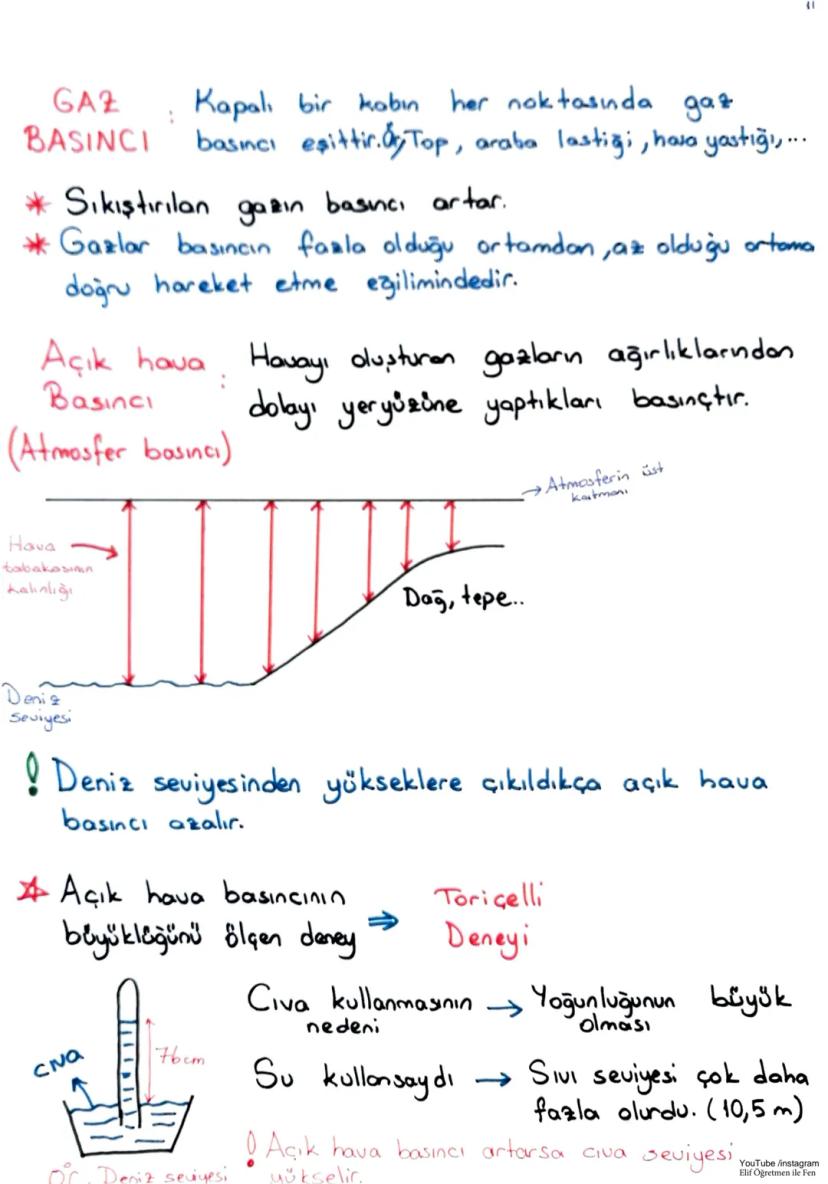 11
GAZ BASINCI : Kapalı bir kabın her noktasında gaz
basıncı eşittir. Ör; Top, araba lastiği, hava yastığı,...
* Sıkıştırılan gazın basıncı artar.
* Gazlar basıncın fazla olduğu ortamdan, az olduğu ortama
doğru hareket etme eğilimindedir.
Açık hava Basıncı : Havayı oluşturan gazların ağırlıklarından
dolayı yeryüzüne yaptıkları basınçtır.
(Atmosfer basıncı)
→ Atmosferin üst
katmanı
Hava →
tabakasının
kalınlığı
Dağ, tepe..
Deniz
seviyesi
! Deniz seviyesinden yükseklere çıkıldıkça açık hava
basıncı azalır.
Açık hava basıncının
büyüklüğünü ölçen deney ⇒ Toriçelli
Deneyi
Cıva kullanmasının → Yoğunluğunun büyük
nedeni olması
cıva
76cm
Su kullansaydı → Sıvı seviyesi çok daha
fazla olurdu. (10,5 m)
! Açık hava basıncı artarsa cıva seviyesi
yükselir.
0°C, Deniz seviyesi
YouTube /instagram
Elif Öğretmen ile Fen